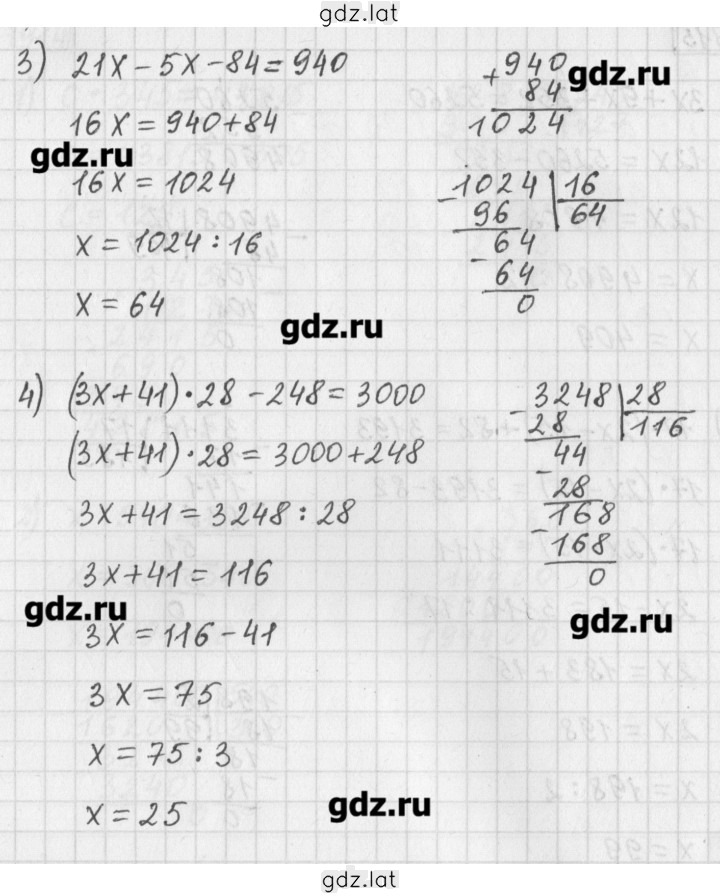 gdz.lat
3) 21x - 5x - 84 = 940
16x = 940 + 84
16x = 1024
x = 1024 : 16
x = 64
+ 940
84
1024
gdz.ru
gdz.ru
- 1024 | 16
96 64
- 64
64
0
gdz.ru
4) (3x + 41) · 28 - 248 = 3000
(3x + 41) · 28 = 3000 + 248
3x + 41 = 3248 : 28
3x + 41 = 116
3x = 116 - 41
3x = 75
x = 75 : 3
x = 25
- 3248 | 28
28 116
- 44
28
- 168
168
0
gdz.ru
gdz.ru
gdz.ru
gdz.lat